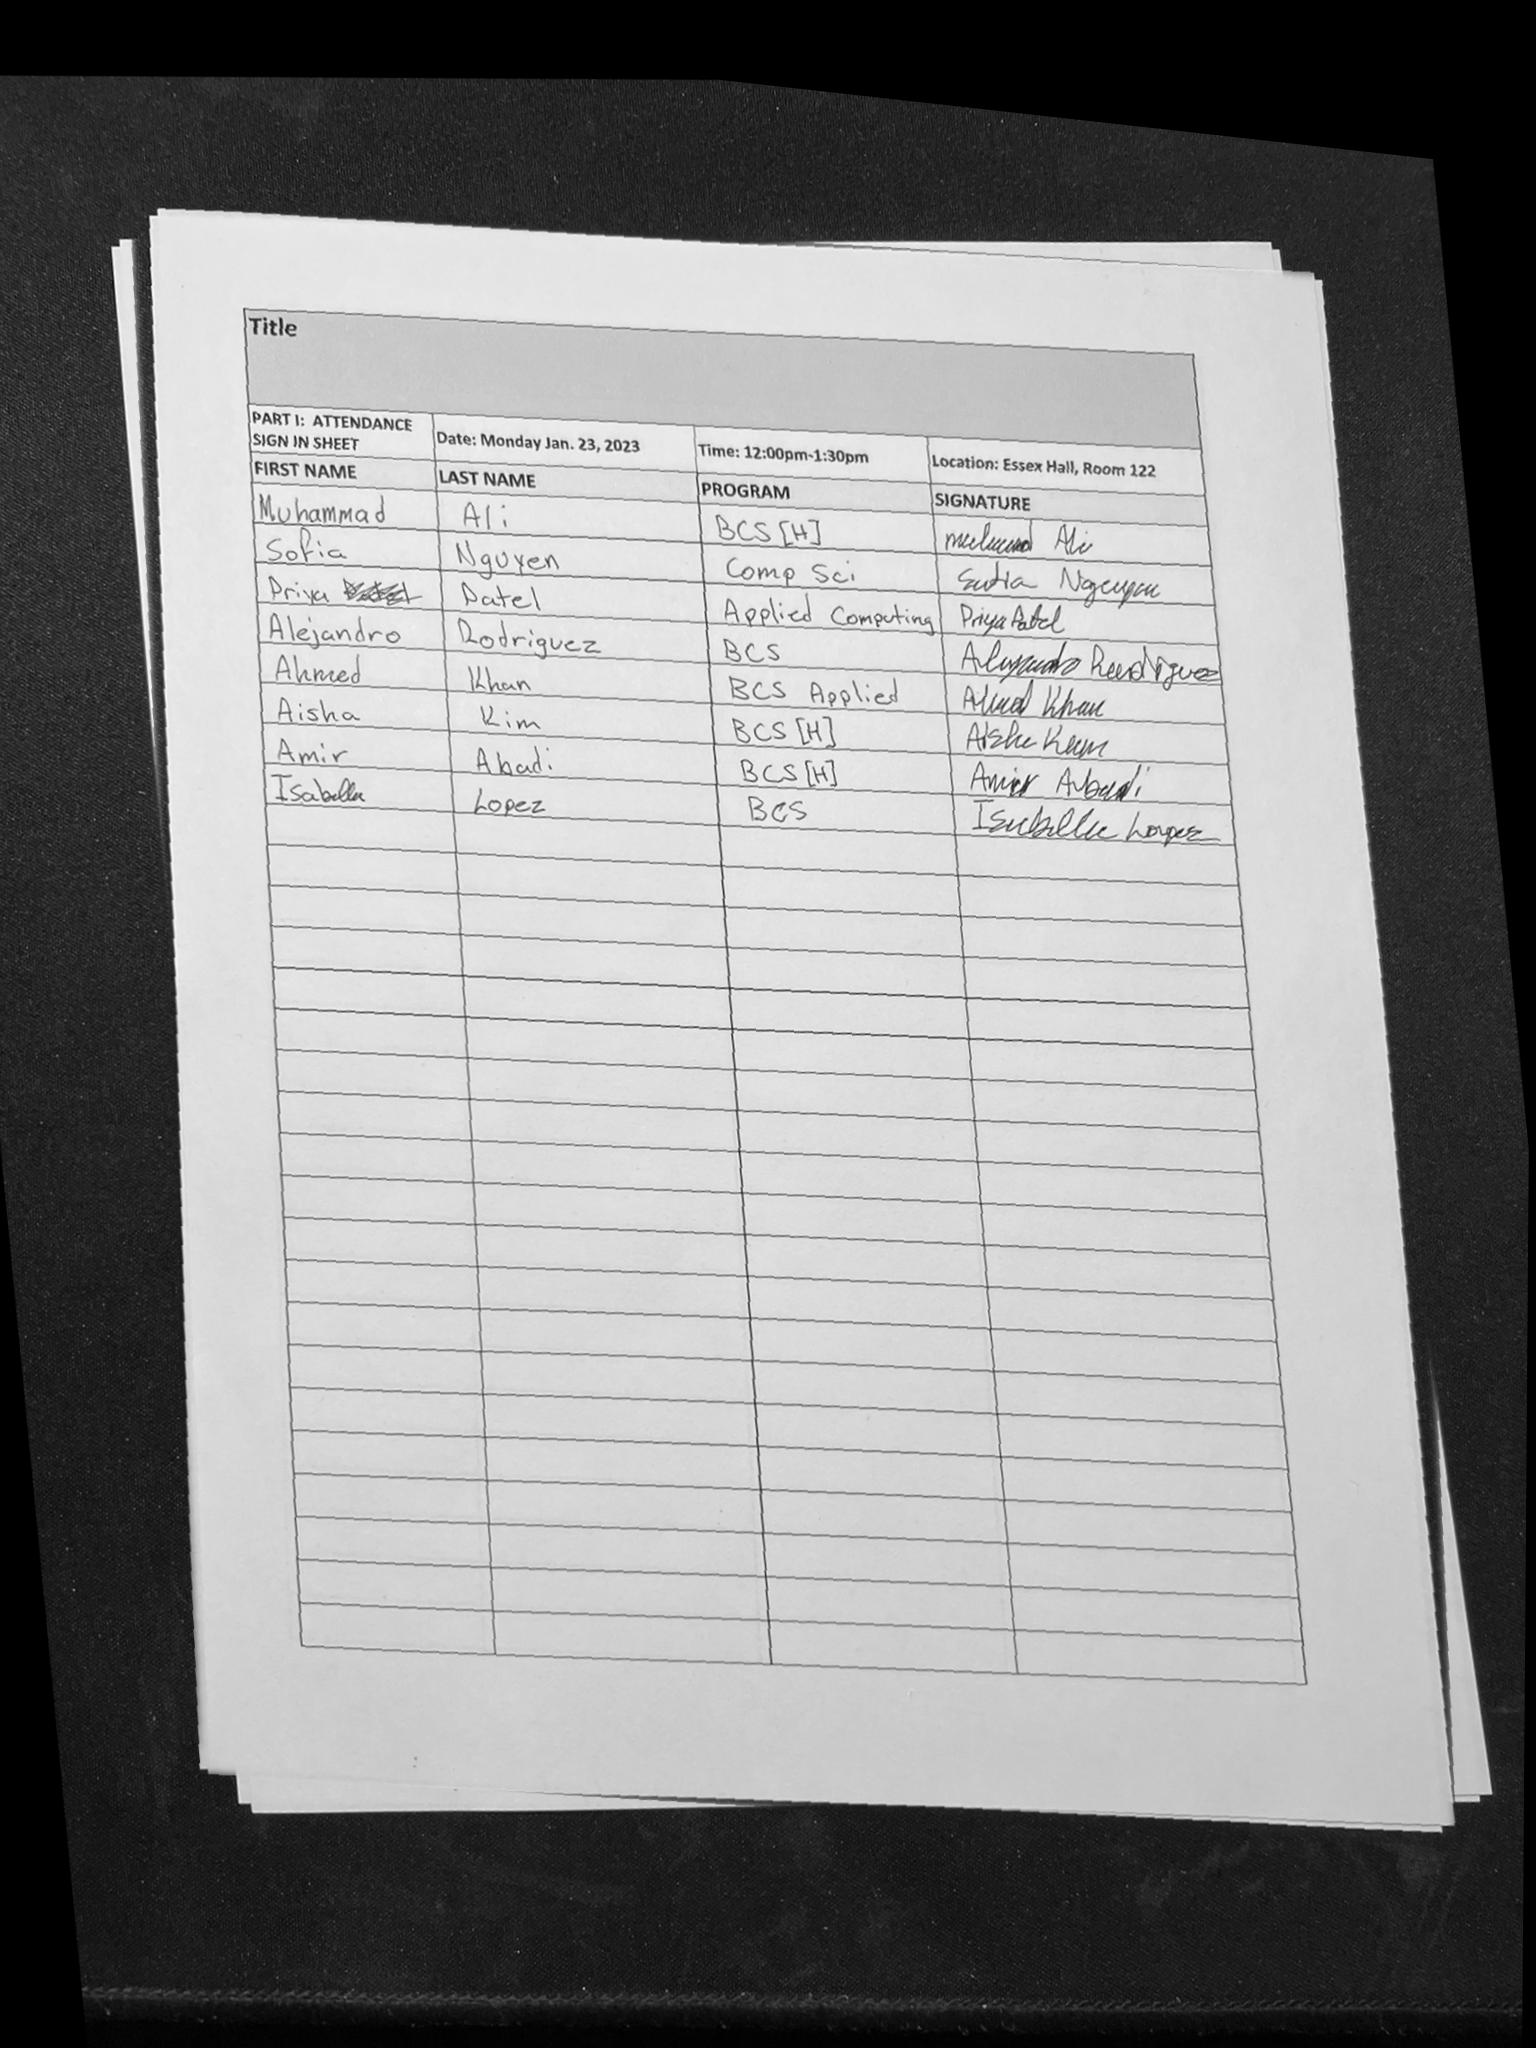 Title
PART I: ATTENDANCE SIGN IN SHEET Date: Monday Jan. 23, 2023 Time: 12:00pm-1:30pm Location: Essex Hall, Room 122
FIRST NAME LAST NAME PROGRAM SIGNATURE
Muhammad Ali BCS [H] Ali
Sofia Nguyen Comp Sci
Priya Patel Applied Computing Priya Patel
Alejandro Rodriguez BCS Alejandro Rodriguez
Ahmed Khan BCS Applied Ahmed Khan
Aisha Kim BCS [H] Aisha Kim
Amir Abadi BCS [H] Amir Abadi
Isabella Lopez BCS Isabella Lopez